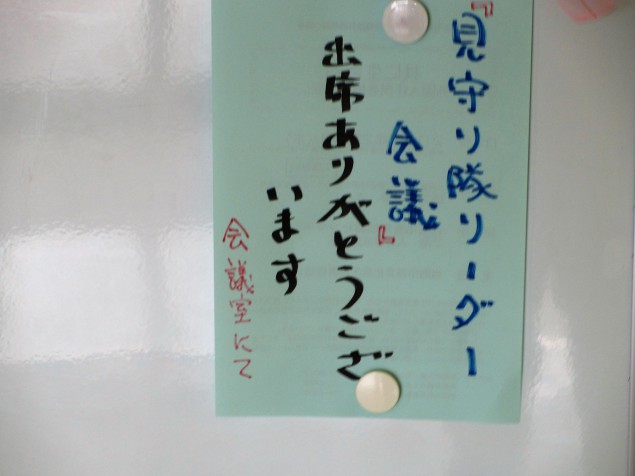 『見守り隊リーダー
会議』
出席ありがとうござ
います
会議室にて